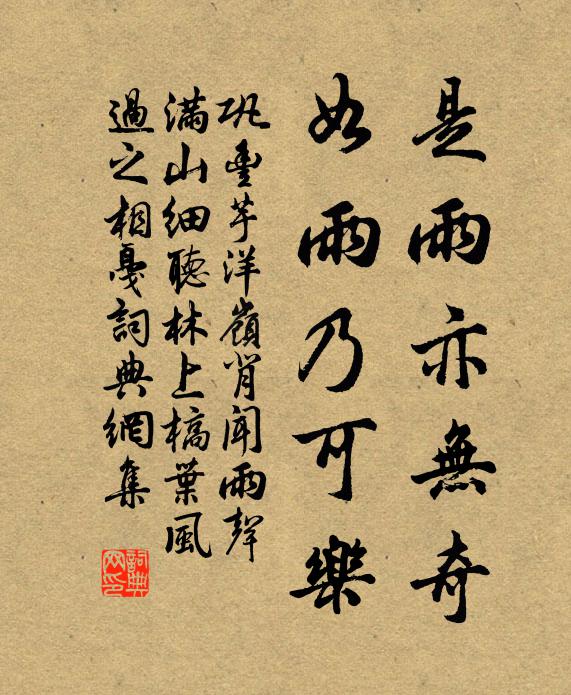 是雨亦無奇
如雨乃可樂
巩豐芋洋嶺背聞雨聲
滿山細聽林上槁葉風
過之相戛詞典網集
詞典
网印